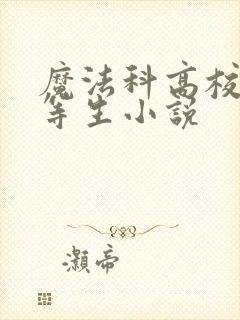 魔法科高校
等生小説
灏帝